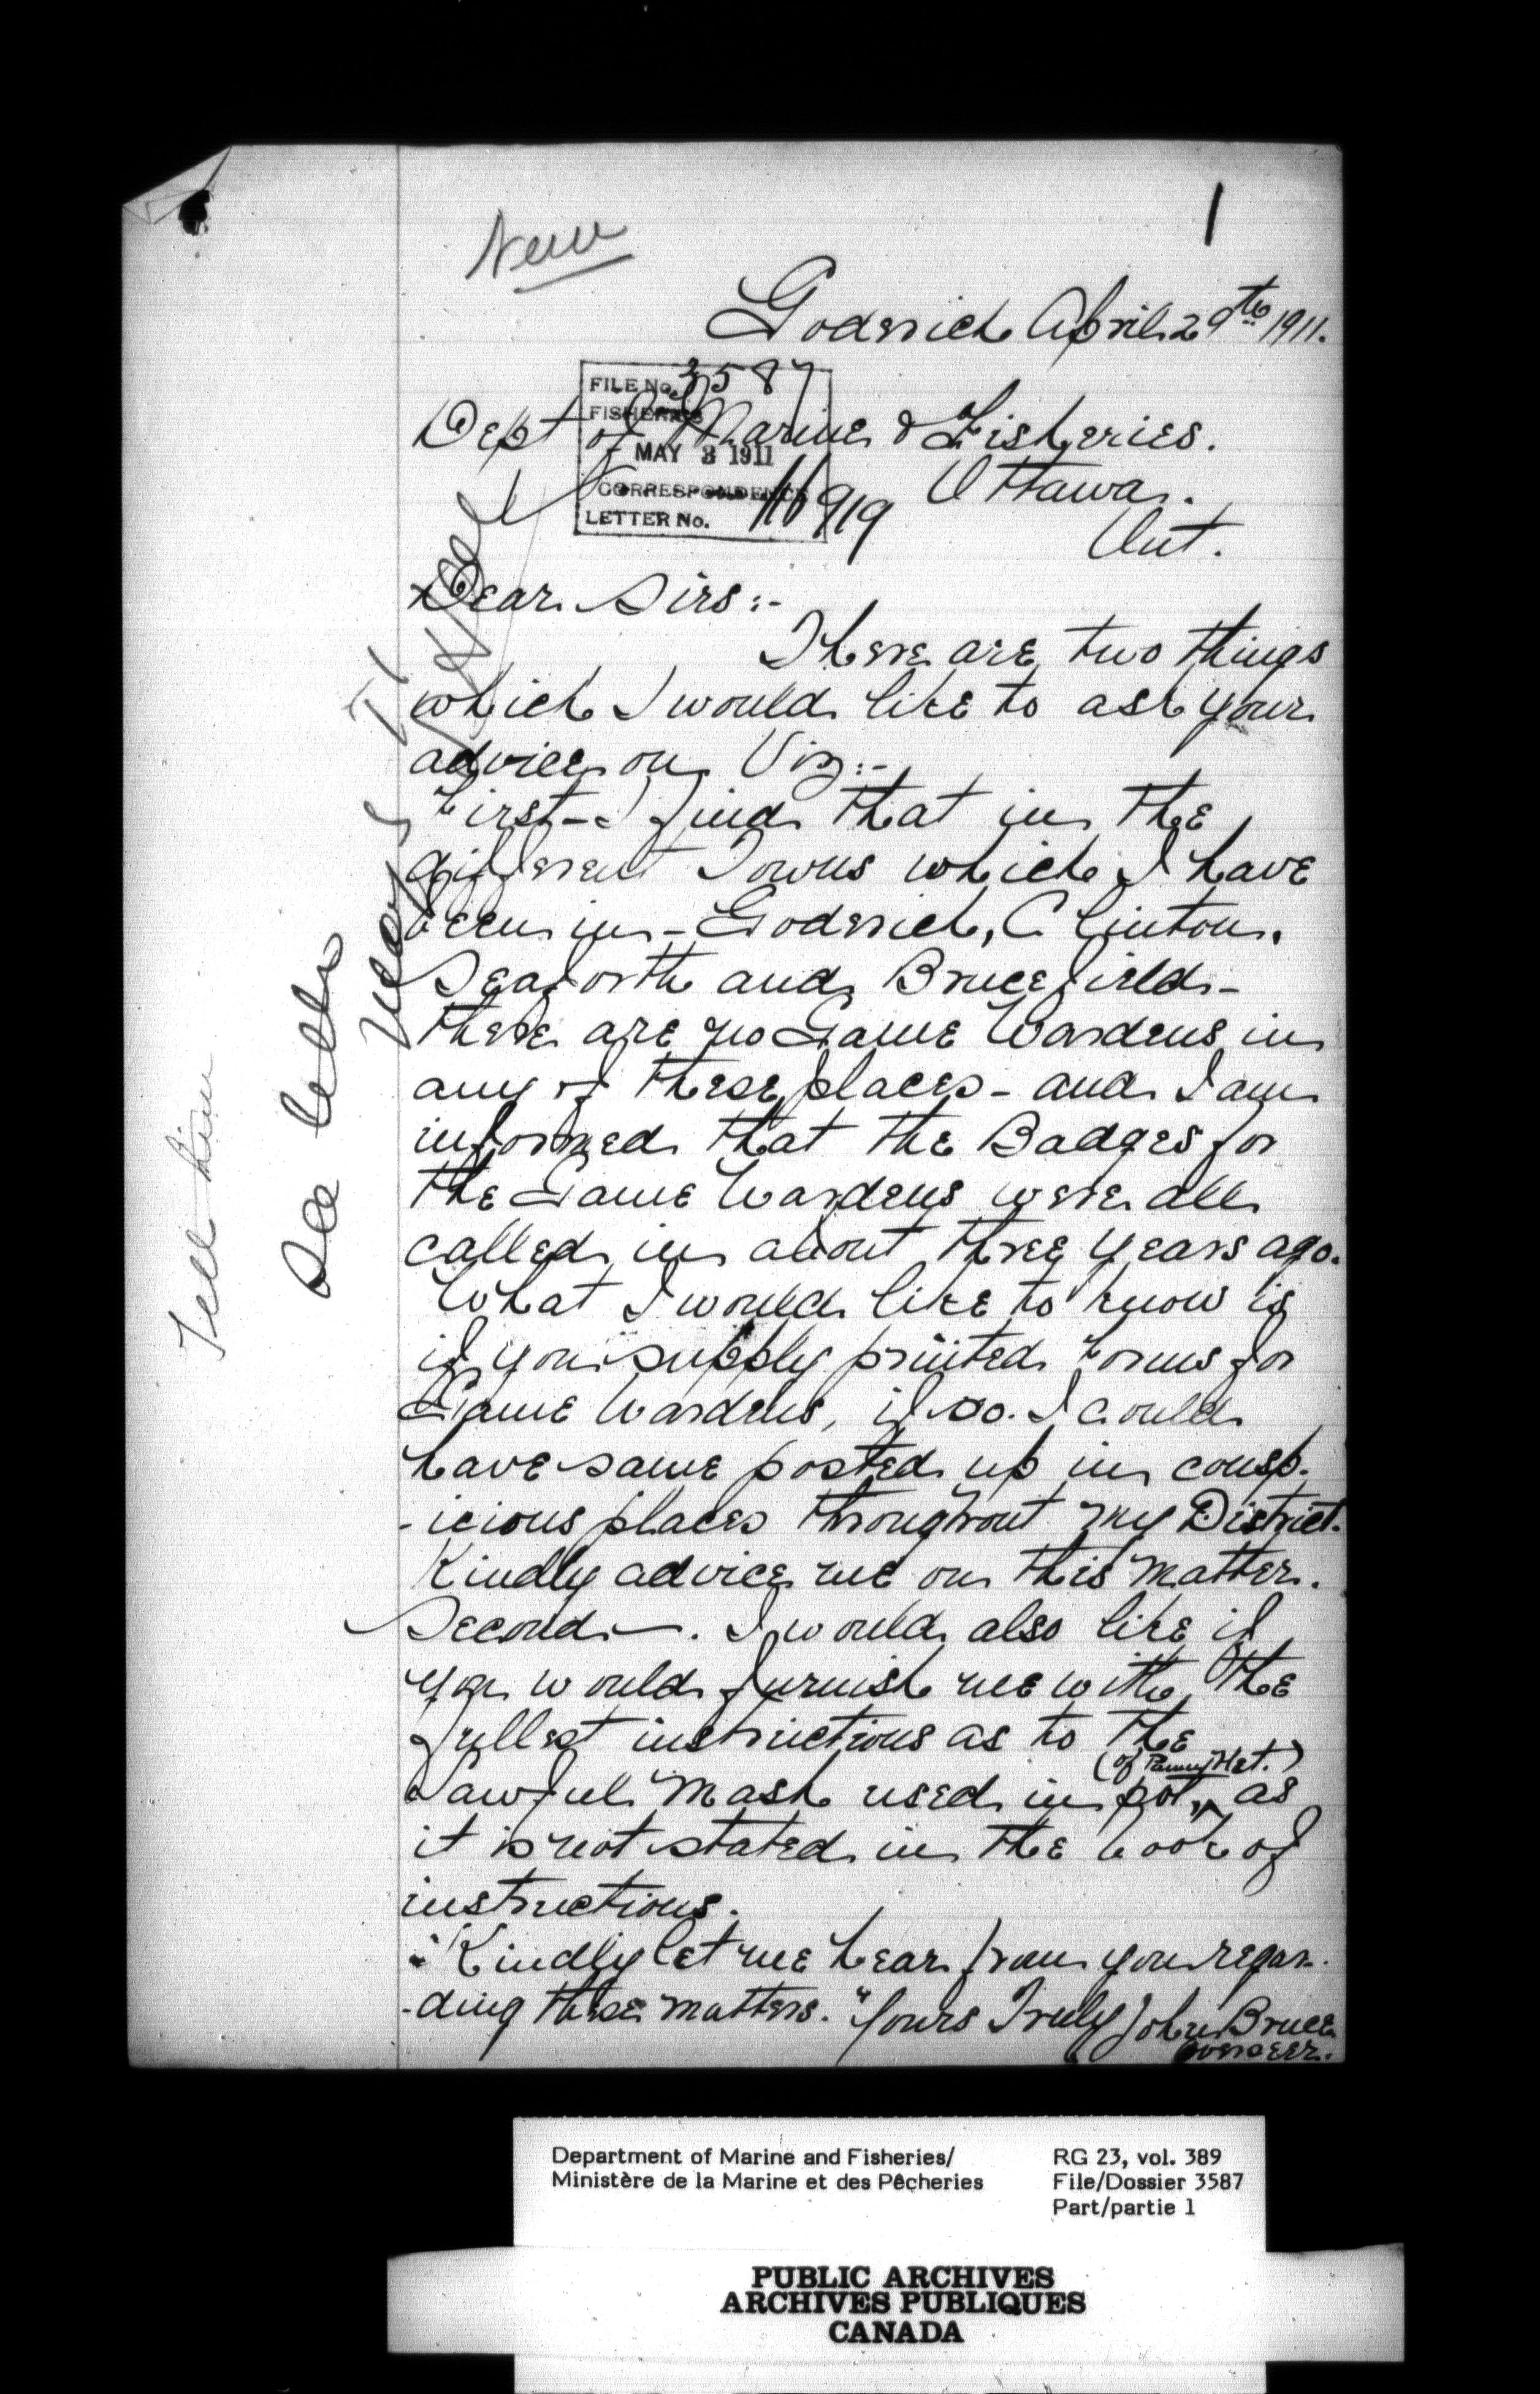 1
New
Goderich April 29th 1911.
FILE No. 3587
FISHERIES
MAY 3 1911
CORRESPONDENCE
LETTER No. 116919
Dept of Marine & Fisheries.
Ottawa.
Ont.
Dear Sirs:-
There are two things
which I would like to ask your
advice on Viz:-
First - I find that in the
different Towns which I have
been in - Goderich, Clinton,
Seaforth and Brucefield -
there are no Game Wardens in
any of these places - and I am
informed that the Badges for
the Game Wardens were all
called in about three years ago.
What I would like to know is
if you supply printed Forms for
Game Wardens, if so. I could
have same posted up in consp-
-icious places throughout my District.
Kindly advice me on this matter.
Second -. I would also like if
you would furnish me with the
fullest instructions as to the
(of Pound Net.)
Lawful Mash used in pot, as
it is not stated in the book of
instructions.
Kindly let me hear from you regar-
-ding these matters. Yours Truly John Bruce
Overseer.
Tell him
See letter
May
Department of Marine and Fisheries/
Ministère de la Marine et des Pêcheries
RG 23, vol. 389
File/Dossier 3587
Part/partie 1
PUBLIC ARCHIVES
ARCHIVES PUBLIQUES
CANADA